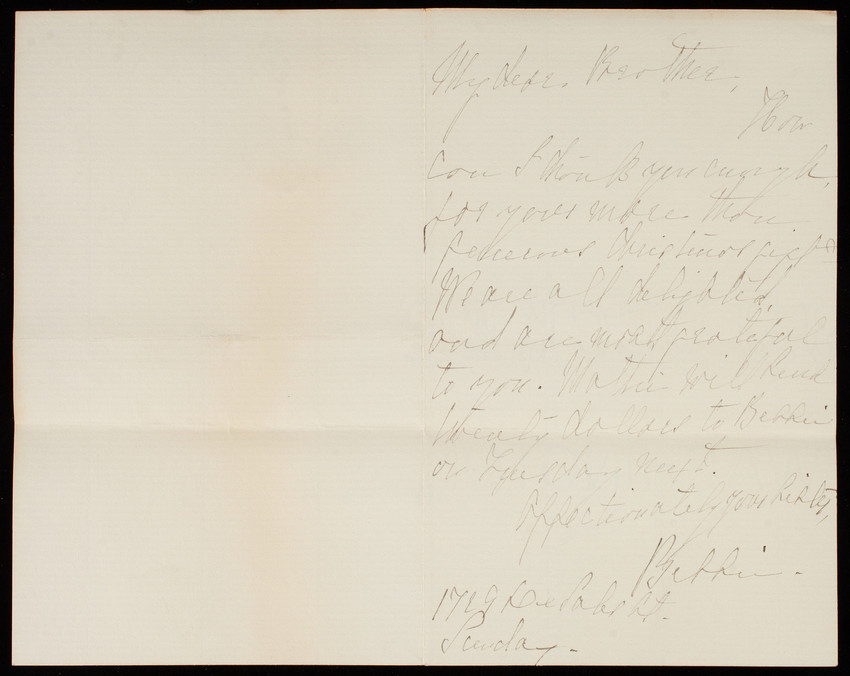 My dear Brother,
How
can I thank you enough,
for your more than
generous Christmas gift?
We are all delighted,
and are most grateful
to you. Mother will send
twenty dollars to Bessie
on Tuesday next.
Affectionately your sister,
Bessie.
1729 De Sales St.
Sunday.